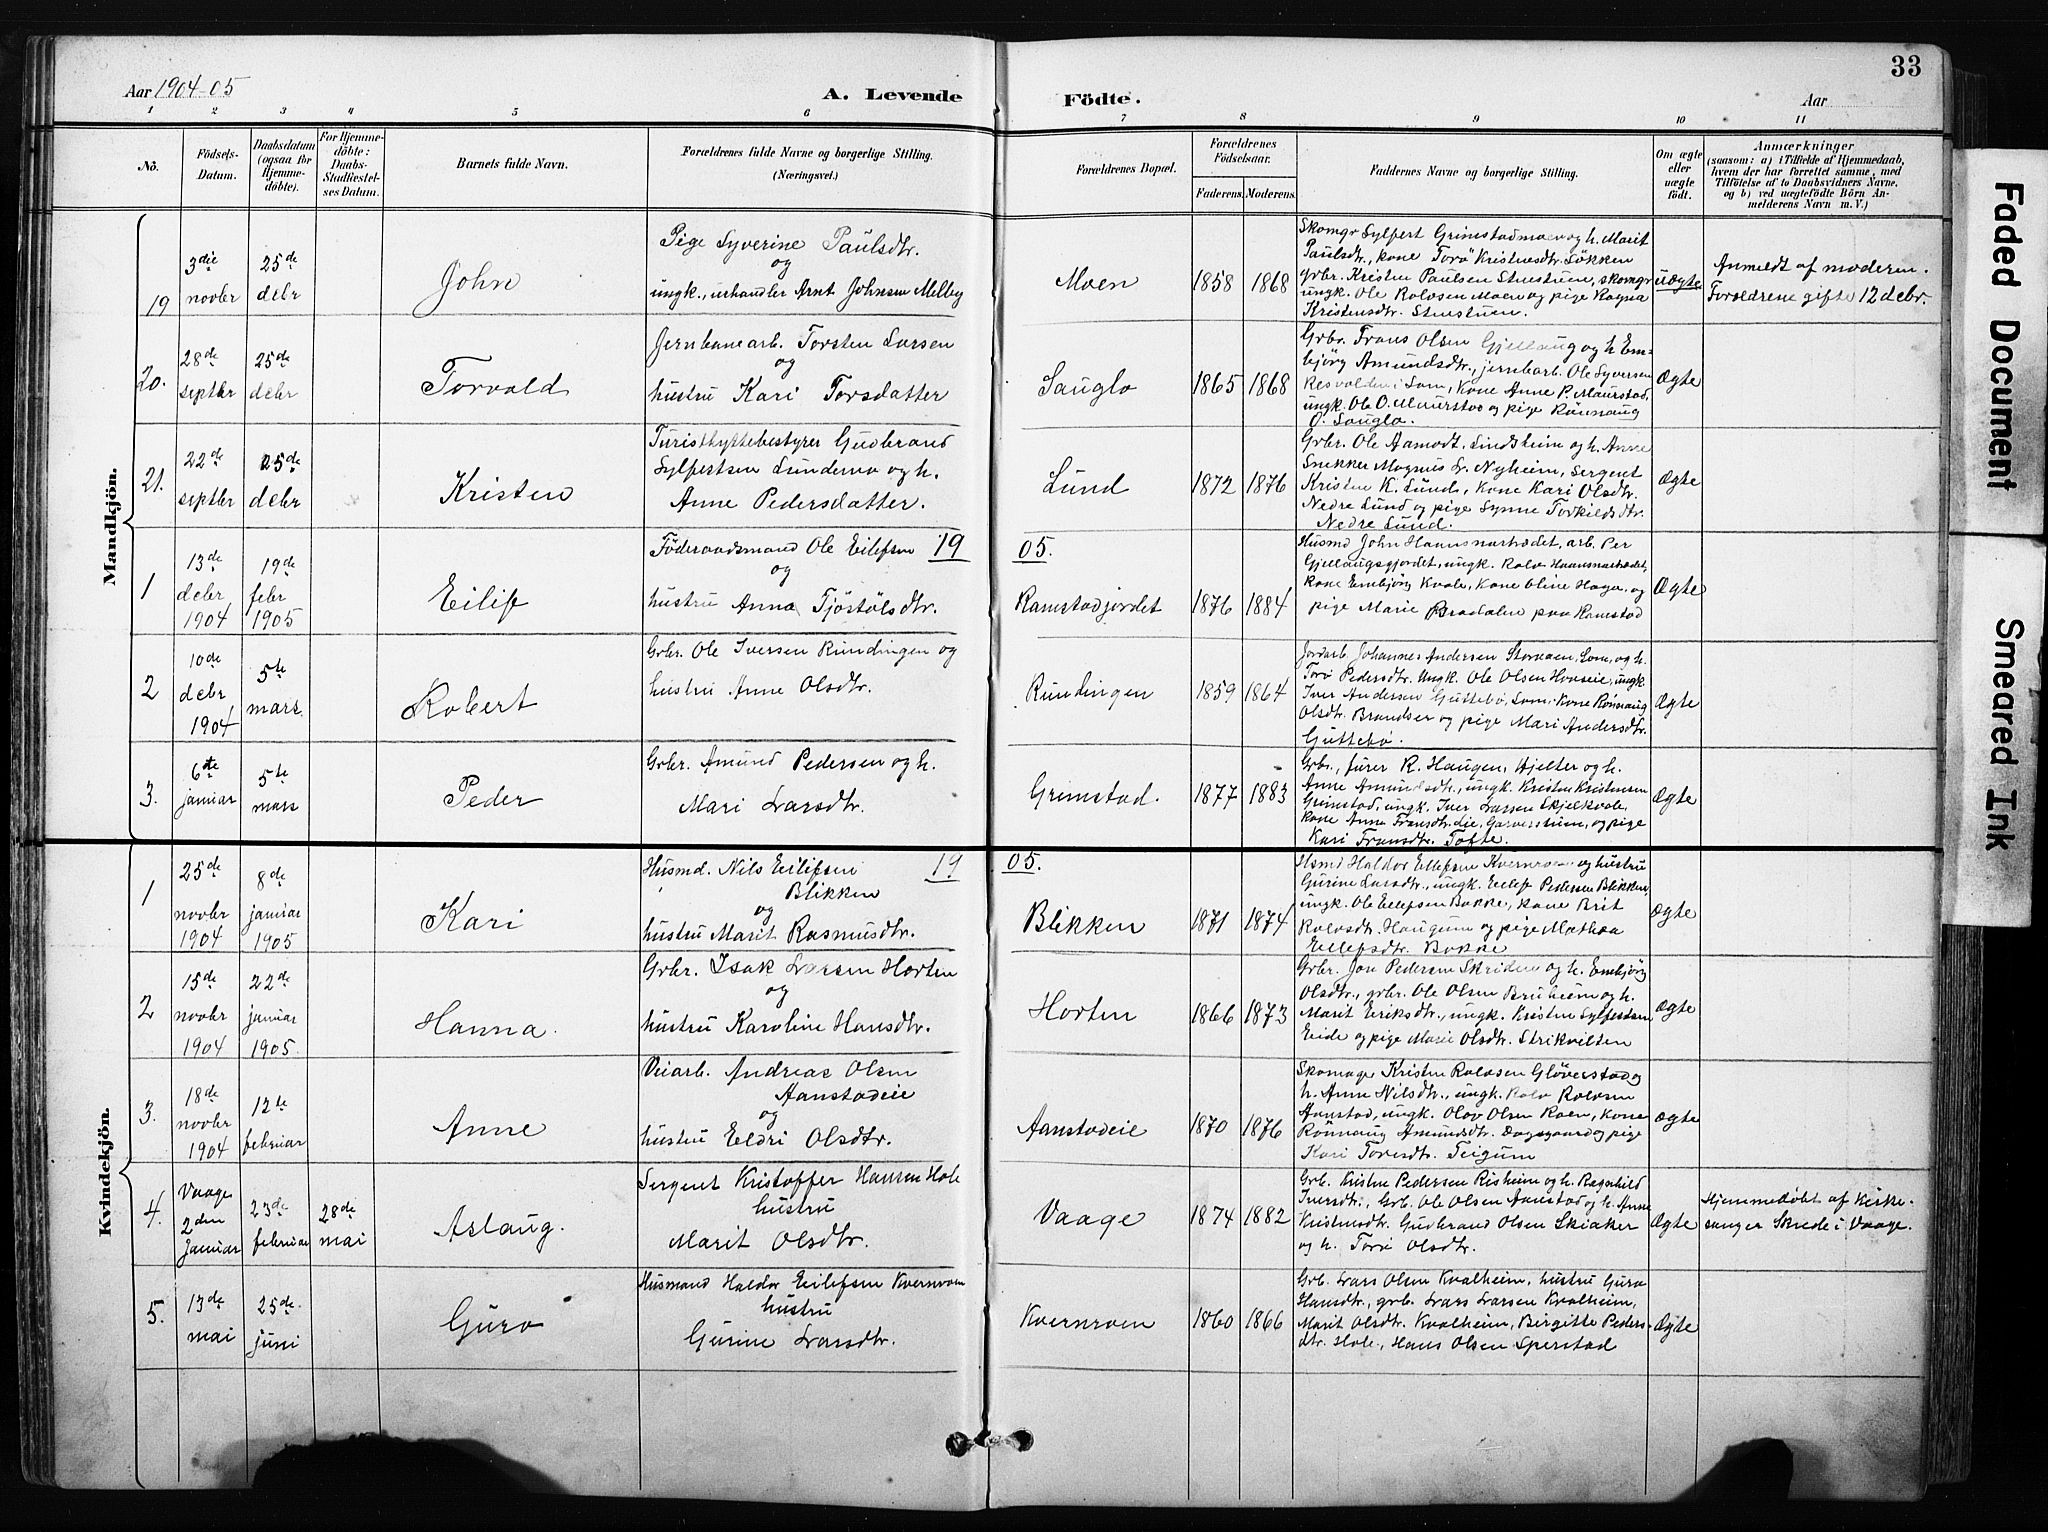 33
Aar 1904-05
A. Levende
Födte.
Aar
1 2 3 4 5 6 7 8 9 10 11
No.
Födsels-
Datum.
Daabsdatum
(ogsaa for
Hjemme-
døbte).
For Hjemme-
döbte:
Daabs-
Stadfæstel-
ses Datum.
Barnets fulde Navn.
Forældrenes fulde Navne og borgerlige Stilling.
(Næringsvei.)
Forældrenes Bopæl.
Forældrenes
Födselsaar.
Faderens. Moderens.
Faddernes Navne og borgerlige Stilling.
Om ægte
eller
uægte
födt.
Anmærkninger
(saasom: a) i Tilfælde af Hjemmedaab,
hvem der har forrettet samme, med
Tilföielse af to Daabsvidners Navne.
og b) ved uægtefödte Börn An-
melderens Navn m. V.)
Mandkjön.
19
3die
novbr
25de
debr
John
Pige Syverine Paulsdtr.
og
ungk., urhandler Arnt Johnsen Melby
Moen
1858 1868
Skomgr Sylfert Grimstadmoen og h. Marit
Paulsdtr., kone Torö Kristensdtr. Sökken
Grbr. Kristen Paulsen Stenstuen, skomgr
ungk. Ole Rolvsen Moen og pige Ragna
Kristensdtr. Stenstuen.
uægte
Anmeldt af moderen.
Forældrene gifte 12 debr.
20.
28de
septbr
25de
debr
Torvald
Jernbanearb. Torsten Larsen
og
hustru Kari Torsdatter
Sauglo
1865 1868
Grbr. Frans Olsen Gjellaug og h. Em-
björg Amundsdtr., jernbarb. Ole Syversen
Resvolden i Lom, Kone Anne P. Maurstad,
ungk. Ole O. Maurstad og pige Rönnaug
O. Sauglo.
Ægte
21.
22de
septbr
25de
debr
Kristen
Turisthyttebestyrer Gudbrand
Sylfestsen Lundemo og h.
Anne Pedersdatter.
Lund
1872 1876
Grbr. Ole Aamodt. Lindsheim og h. Anne
Snekker Magnus L. Nyheim, Sergent
Kristen K. Lund, Kone Kari Olsdtr.
Nedre Lund og pige Synne Torkildsdtr.
Nedre Lund.
Ægte
1905.
1
13de
debr
1904
19de
febr
1905
Eilif
Föderaadsmand Ole Eilefsen
og
hustru Anna Tjöstölsdtr.
Ramstadjordet
1876 1884
Husmd John Haansnarhædet, arb. Per
Gjellaugsgjordet, ungk. Rolv Haansnarhædet,
kone Embjörg Kvale, kone Eline Haga, og
pige Marie Bradalen paa Ramstad
Ægte
2
10de
debr
1904
5te
mars
Robert
Grbr. Ole Iversen Rundingen og
hustru Anne Olsdtr.
Rundingen
1859 1864
Jordarb. Johannes Andersen Storøien, Lom, og h.
Torö Pedersdtr. Ungk. Ole Olsen Hovseie, ungk.
Iver Andersen Guttebö, Lom, Kone Rönnaug
Olsdtr. Brandser og pige Mari Andersdtr.
Guttebö.
Ægte
3.
6te
januar
5te
mars
Peder
Grbr. Amund Pedersen og h.
Mari Larsdtr.
Grimstad.
1877 1883
Grbr., furer R. Haugen, Hjelter og h.
Anne Amundsdtr., ungk. Kristen Kristensen
Grimstad, ungk. Iver Larsen Skjelkvale,
kone Anne Fransdtr. Lie, Garverstuen, og pige
Kari Fransdtr. Tofte.
Ægte
Kvindekjön.
1905.
1
25de
novbr
1904
8de
januar
1905
Kari
Husmd. Nils Eilifsen
Blikken
og
hustru Marit Rasmusdtr.
Blikken
1871 1874
Hsmd Haldor Eilefsen Kvernroen og hustru
Gurine Larsdtr., ungk. Eilef Pedersen Blikken,
ungk. Ole Eilefsen Bakke, kone Brit
Rolvsdtr. Haugum og pige Mathea
Eilefsdtr. Bakke
Ægte
2
15de
novbr
1904
22de
januar
1905.
Hanna.
Grbr. Isak Larsen Horten
og
hustru Karoline Hansdtr.
Horten
1866 1873
Grbr. Jon Pedersen Skriden og h. Embjörg
Olsdtr., grbr. Ole Olsen Bruheim og h.
Marit Eriksdtr., ungk. Kristen Sylfestsen
Eide og pige Mari Olsdtr. Strikvilten
Ægte
3.
18de
novbr
1904
12te
februar
Anne
Veiarb. Andreas Olsen
Aanstadeie
og
hustru Eldri Olsdtr.
Aanstadeie
1870 1876
Skomager Kristen Rolvsen Glöverstad og
h. Anne Nilsdtr., ungk. Rolv Rolvsen
Aanstad, ungk. Olav Olsen Roen, kone
Rönnaug Amundsdtr. Dagsgaard og pige
Kari Toresdtr. Teigum
Ægte
4.
Vaage
2den
januar
23de
februar
28de
mai
Aslaug.
Sergent Kristoffer Hansen Hole
hustru
Marit Olsdtr.
Vaage
1874 1882
Grb. Kristen Pedersen Risheim og h. Ragnhild
Iversdtr., Grb. Ole Olsen Aanstad og h. Anne
Kristensdtr. Gudbrand Olsen Skiaker
og h. Torö Olsdtr.
Ægte
Hjemmedøbt af Kirke-
sanger Skrede i Vaage.
5.
13de
mai
25de
juni
Guro
Husmand Haldor Eilefsen Kvernroen
hustru
Gurine Larsdtr.
Kvernroen
1860 1866
Grb. Lars Olsen Kvalheim, hustru Guro
Hansdtr., grb. Lars Larsen Kvalheim,
Marit Olsdtr. Kvalheim, Birgitte Peders-
dtr. Hole, Hans Olsen Sperstad
Ægte
Faded Document
Smeared Ink